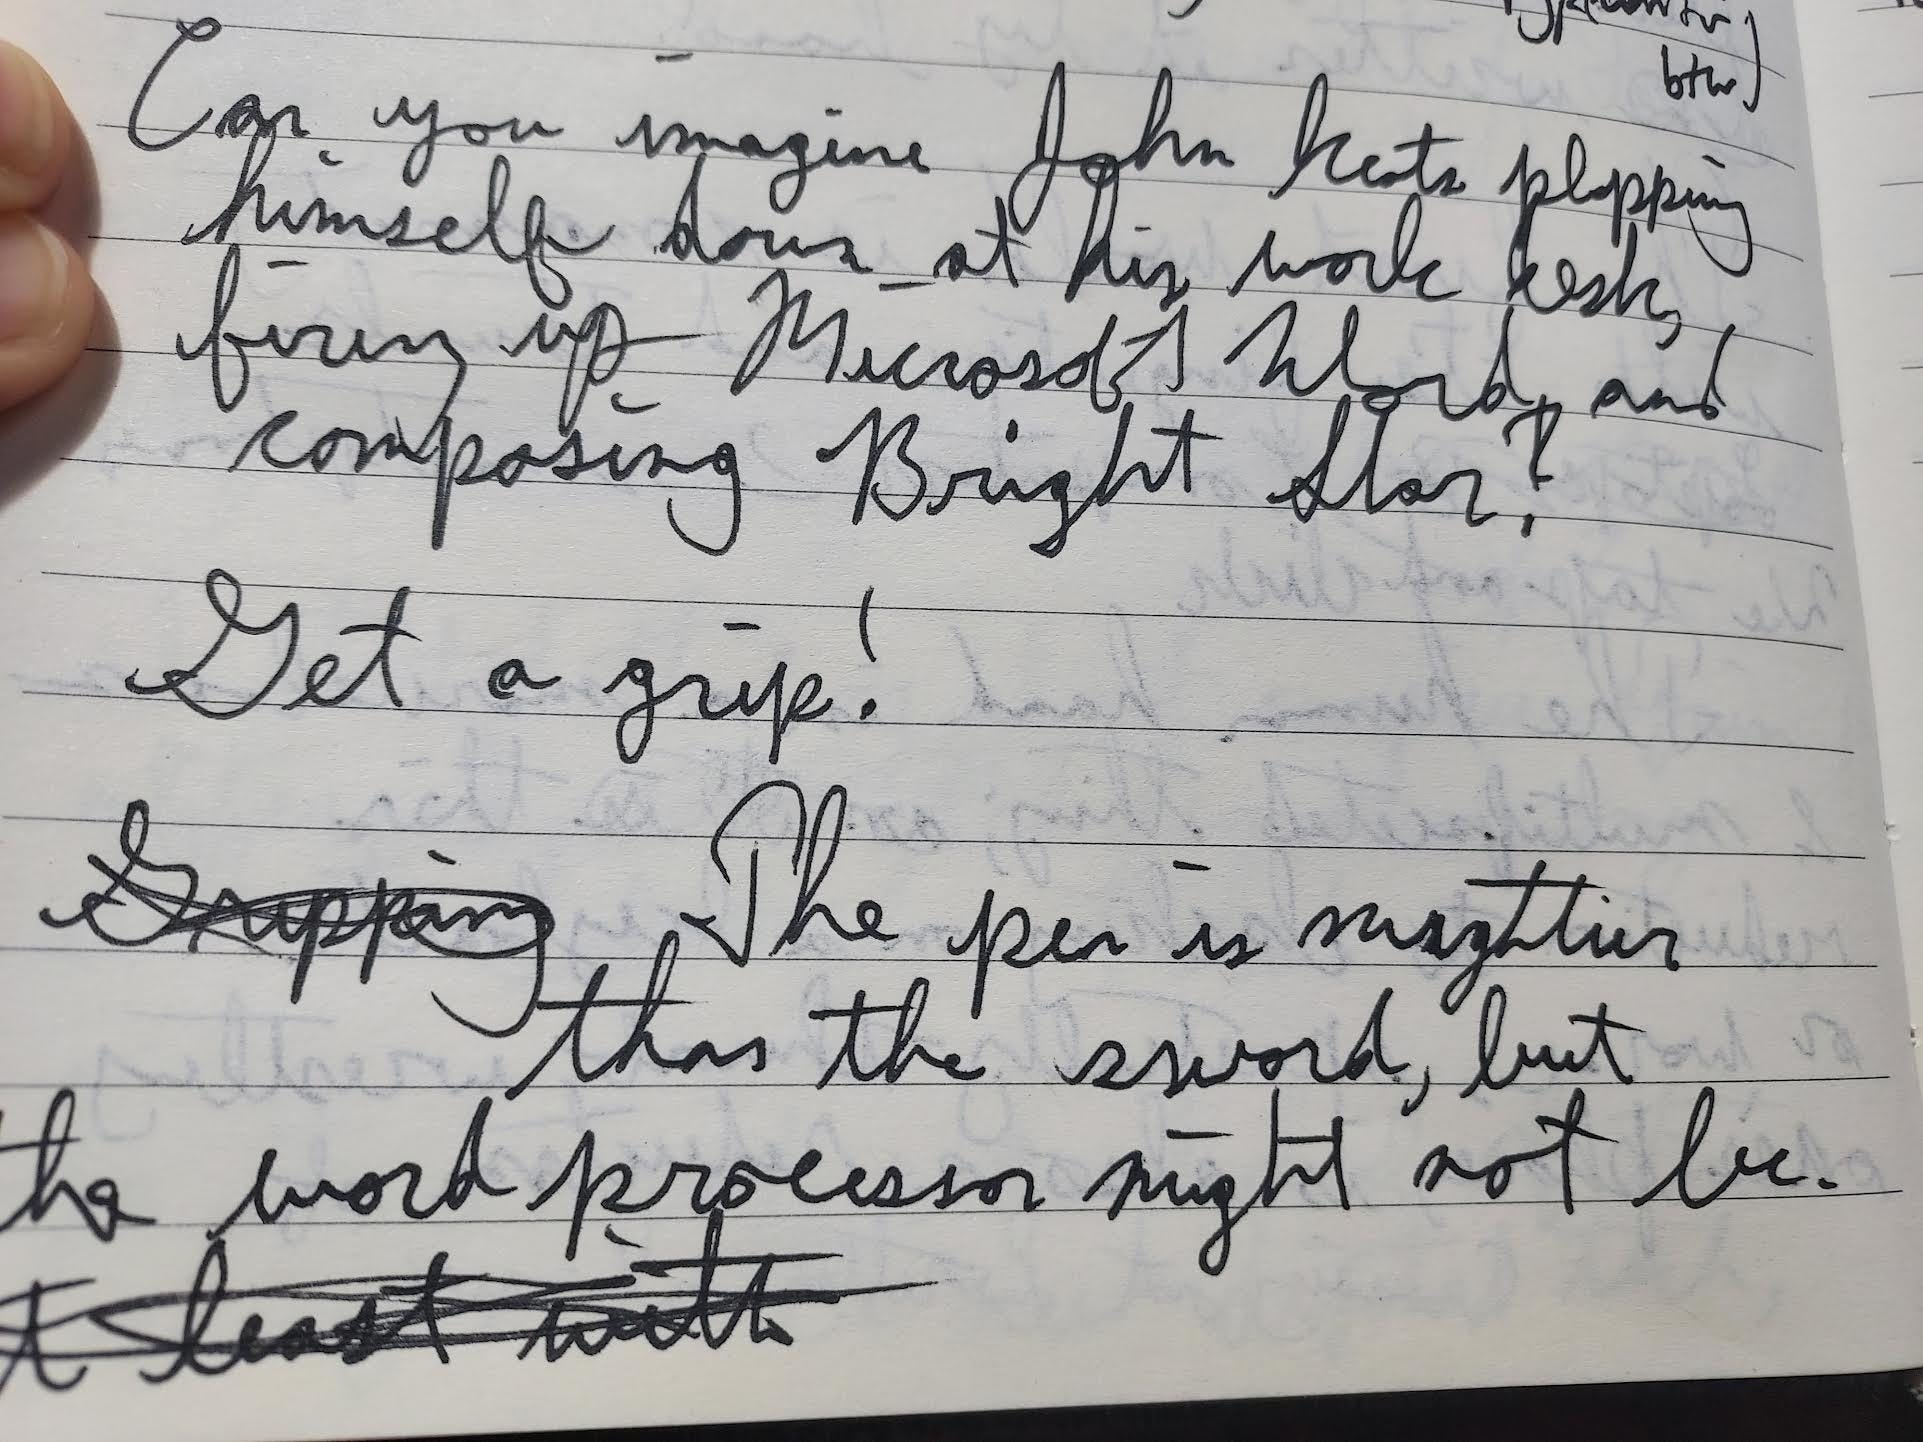 btw)
Can you imagine John Keats plopping
himself down at his work desk,
firing up Microsoft Word, and
composing Bright Star?
Get a grip!
Gripping The pen is mightier
than the sword, but
the word processor might not be.
t least with